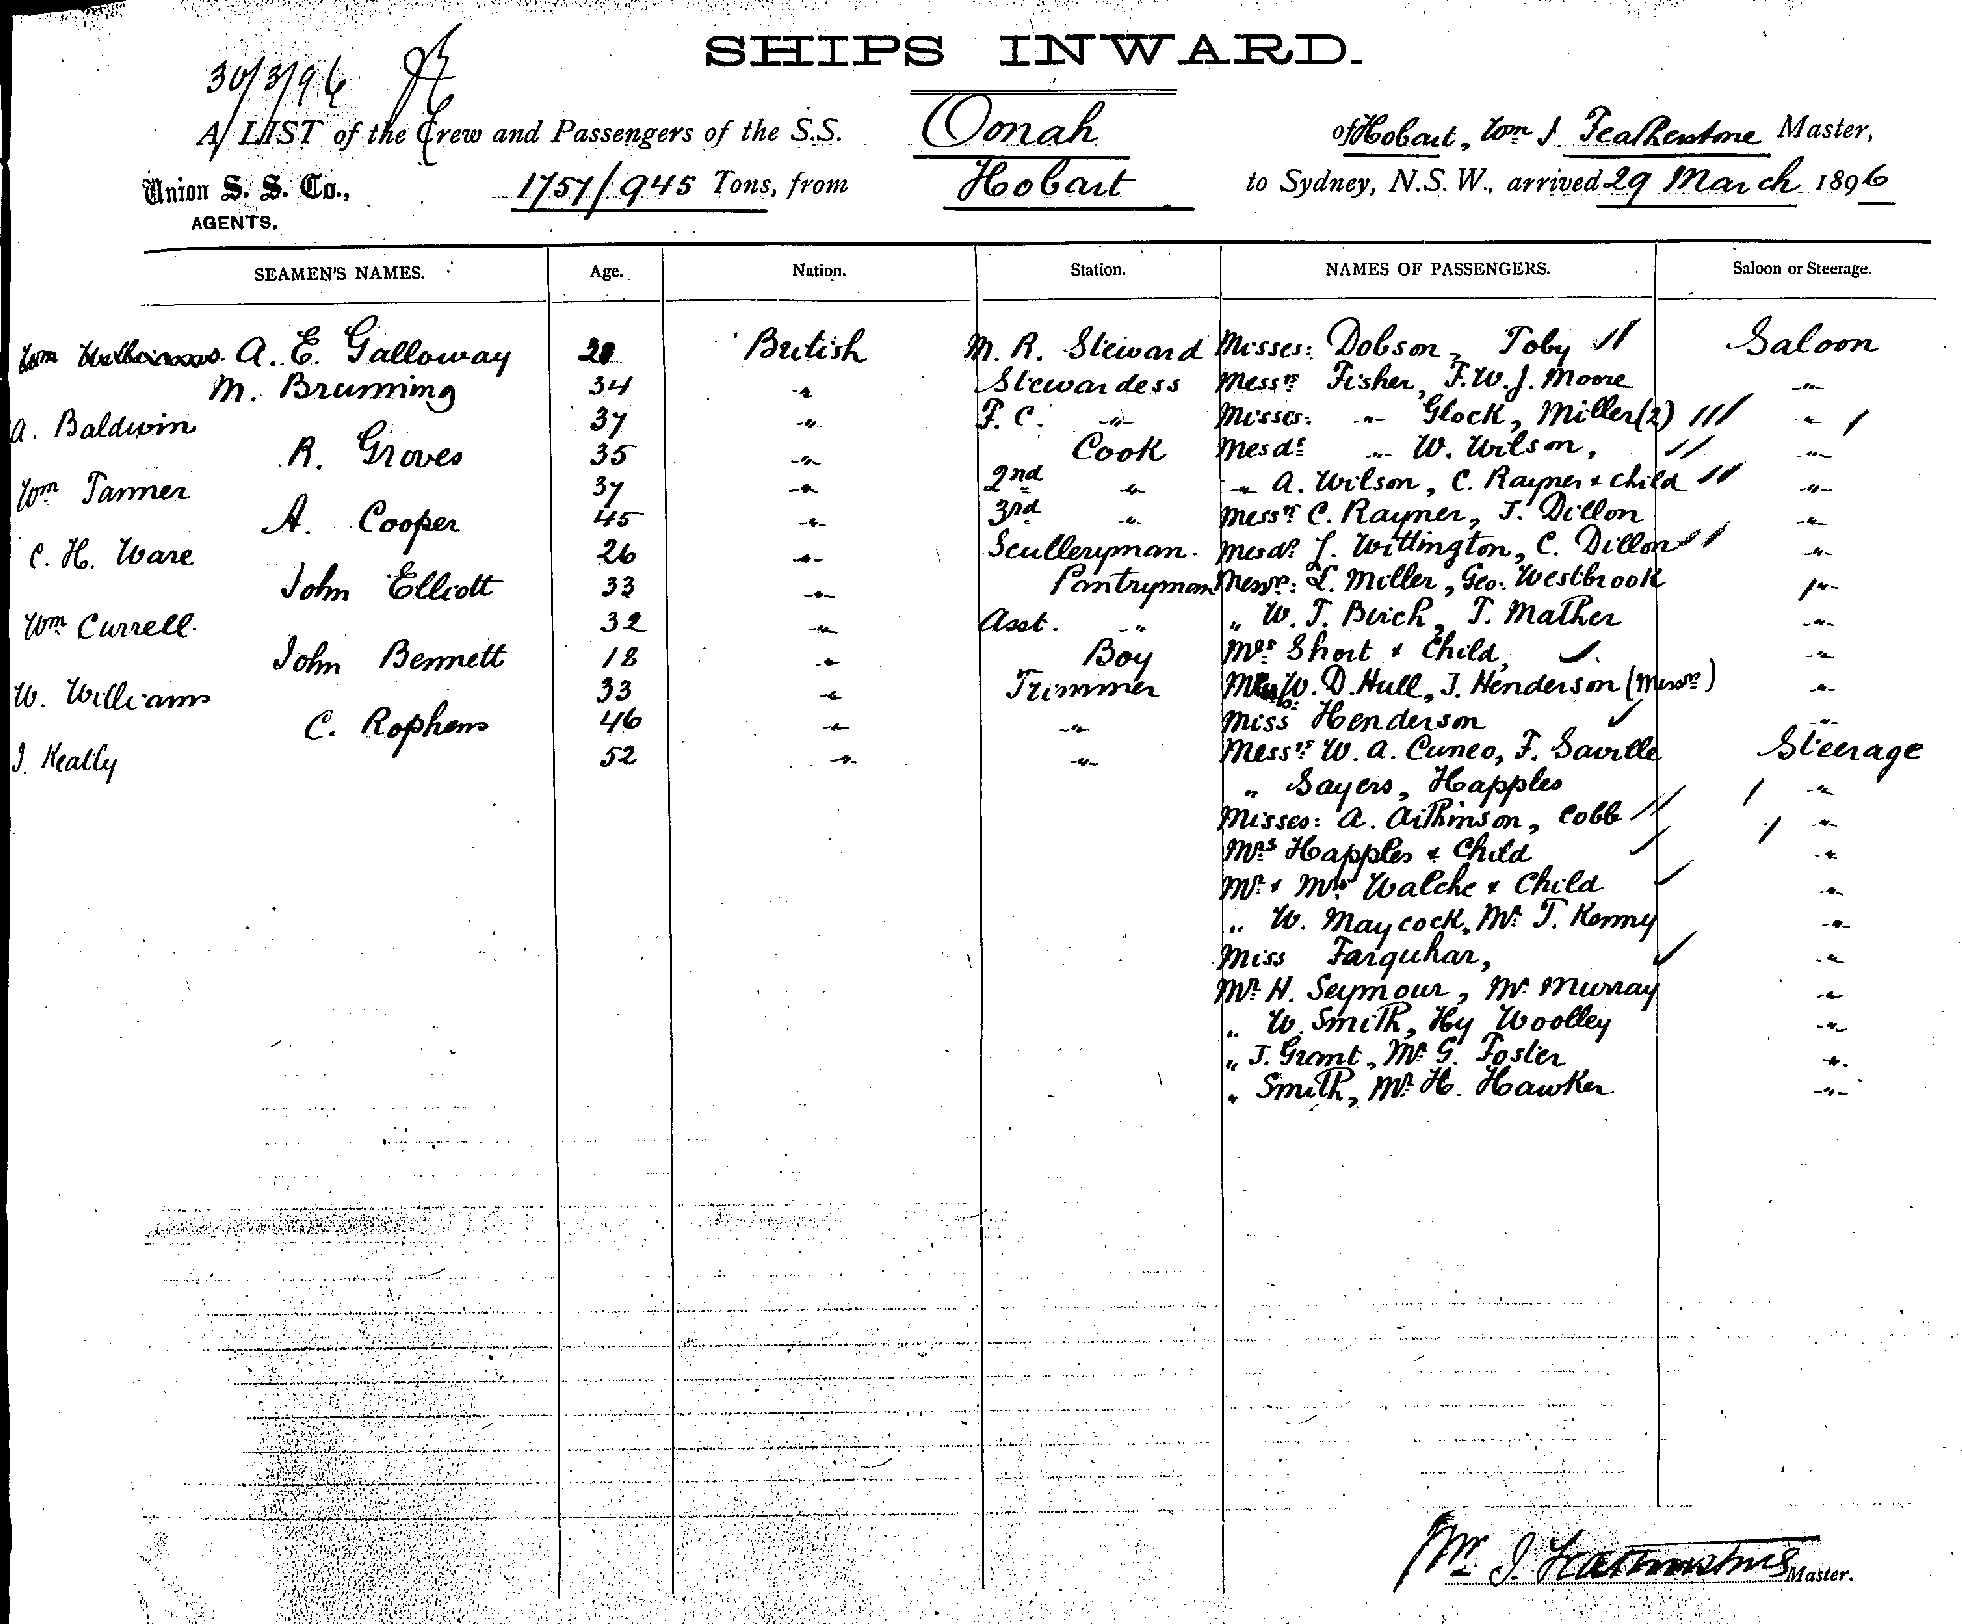 SHIPS INWARD.
30/3/96
A LIST of the Crew and Passengers of the S.S. Oonah of Hobart, Wm J. Featherstone Master,
Union S. S. Co., 1757/945 Tons, from Hobart to Sydney, N.S.W., arrived 29 March 1896
AGENTS.
SEAMEN'S NAMES. Age. Nation. Station. NAMES OF PASSENGERS. Saloon or Steerage.
A. E. Galloway 28 British M. R. Steward Misses: Dobson, Toby // Saloon
M. Brunning 34 " Stewardess Messrs Fisher, F.W.J. Moore "
A. Baldwin 37 " F. C. " Misses: " Glock, Miller (2) /// " /
R. Groves 35 " Cook Mesds " W. Wilson, // "
Wm Tanner 37 " 2nd " " A. Wilson, C. Rayner & child // "
A. Cooper 45 " 3rd " Messrs C. Rayner, J. Dillon "
C. H. Ware 26 " Sculleryman. Mesds J. Wittington, C. Dillon // "
John Elliott 33 " Pantryman Messrs: L. Miller, Geo: Westbrook "
Wm Currell 32 " Asst. " " W. T. Birch, T. Mather "
John Bennett 18 " Boy Mrs Short & Child, "
W. Williams 33 " Trimmer W. D. Hull, J. Henderson (Messrs) "
C. Rophens 46 " " Miss Henderson "
J. Keally 52 " " Messrs W. A. Cuneo, F. Saville Steerage
" Sayers, Happles / "
Misses: A. Aitkinson, Cobb // / "
Mrs Happles & Child "
Mr & Mrs Walche & Child "
" W. Maycock, Mr T. Kenny "
Miss Farquhar, "
Mr H. Seymour, Mr Murray "
" W. Smith, Hy Woolley "
" J. Grant, Mr G. Foster "
" Smith, Mr H. Hawker "
Wm J. Featherstone Master.